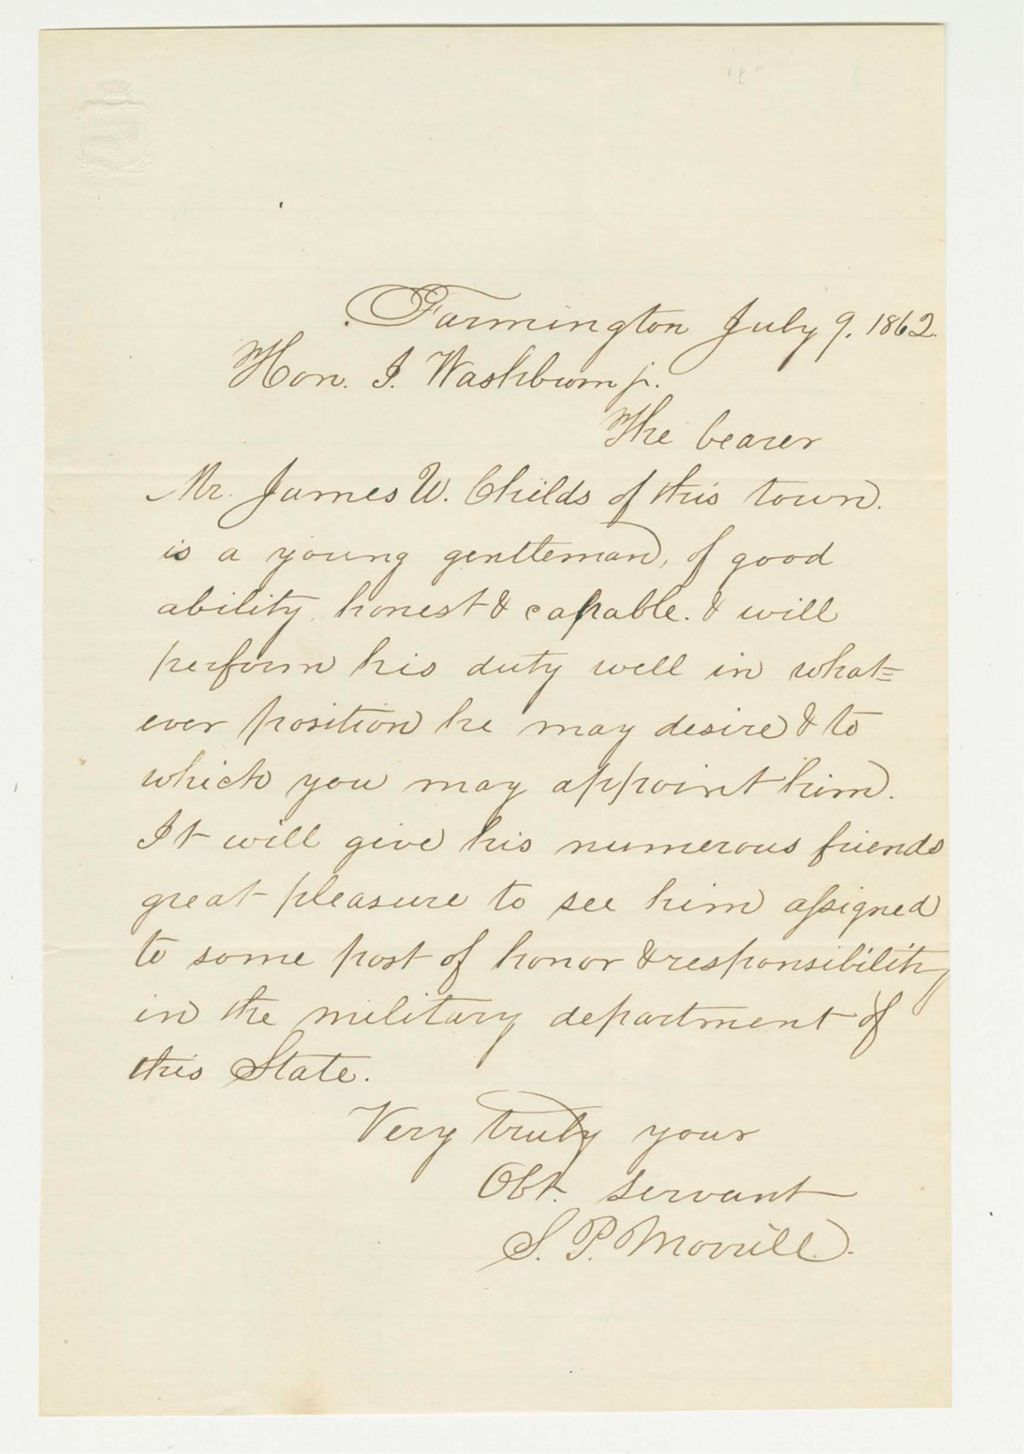 Farmington July 9, 1862.
Hon. I. Washburn jr.
The bearer
Mr. James W. Childs of this town.
is a young gentleman, of good
ability, honest & capable. & will
perform his duty well in what=
ever position he may desire & to
which you may appoint him.
It will give his numerous friends
great pleasure to see him assigned
to some post of honor & responsibility
in the military department of
this State.
Very truly your
Obt. servant
S. P. Morrill.